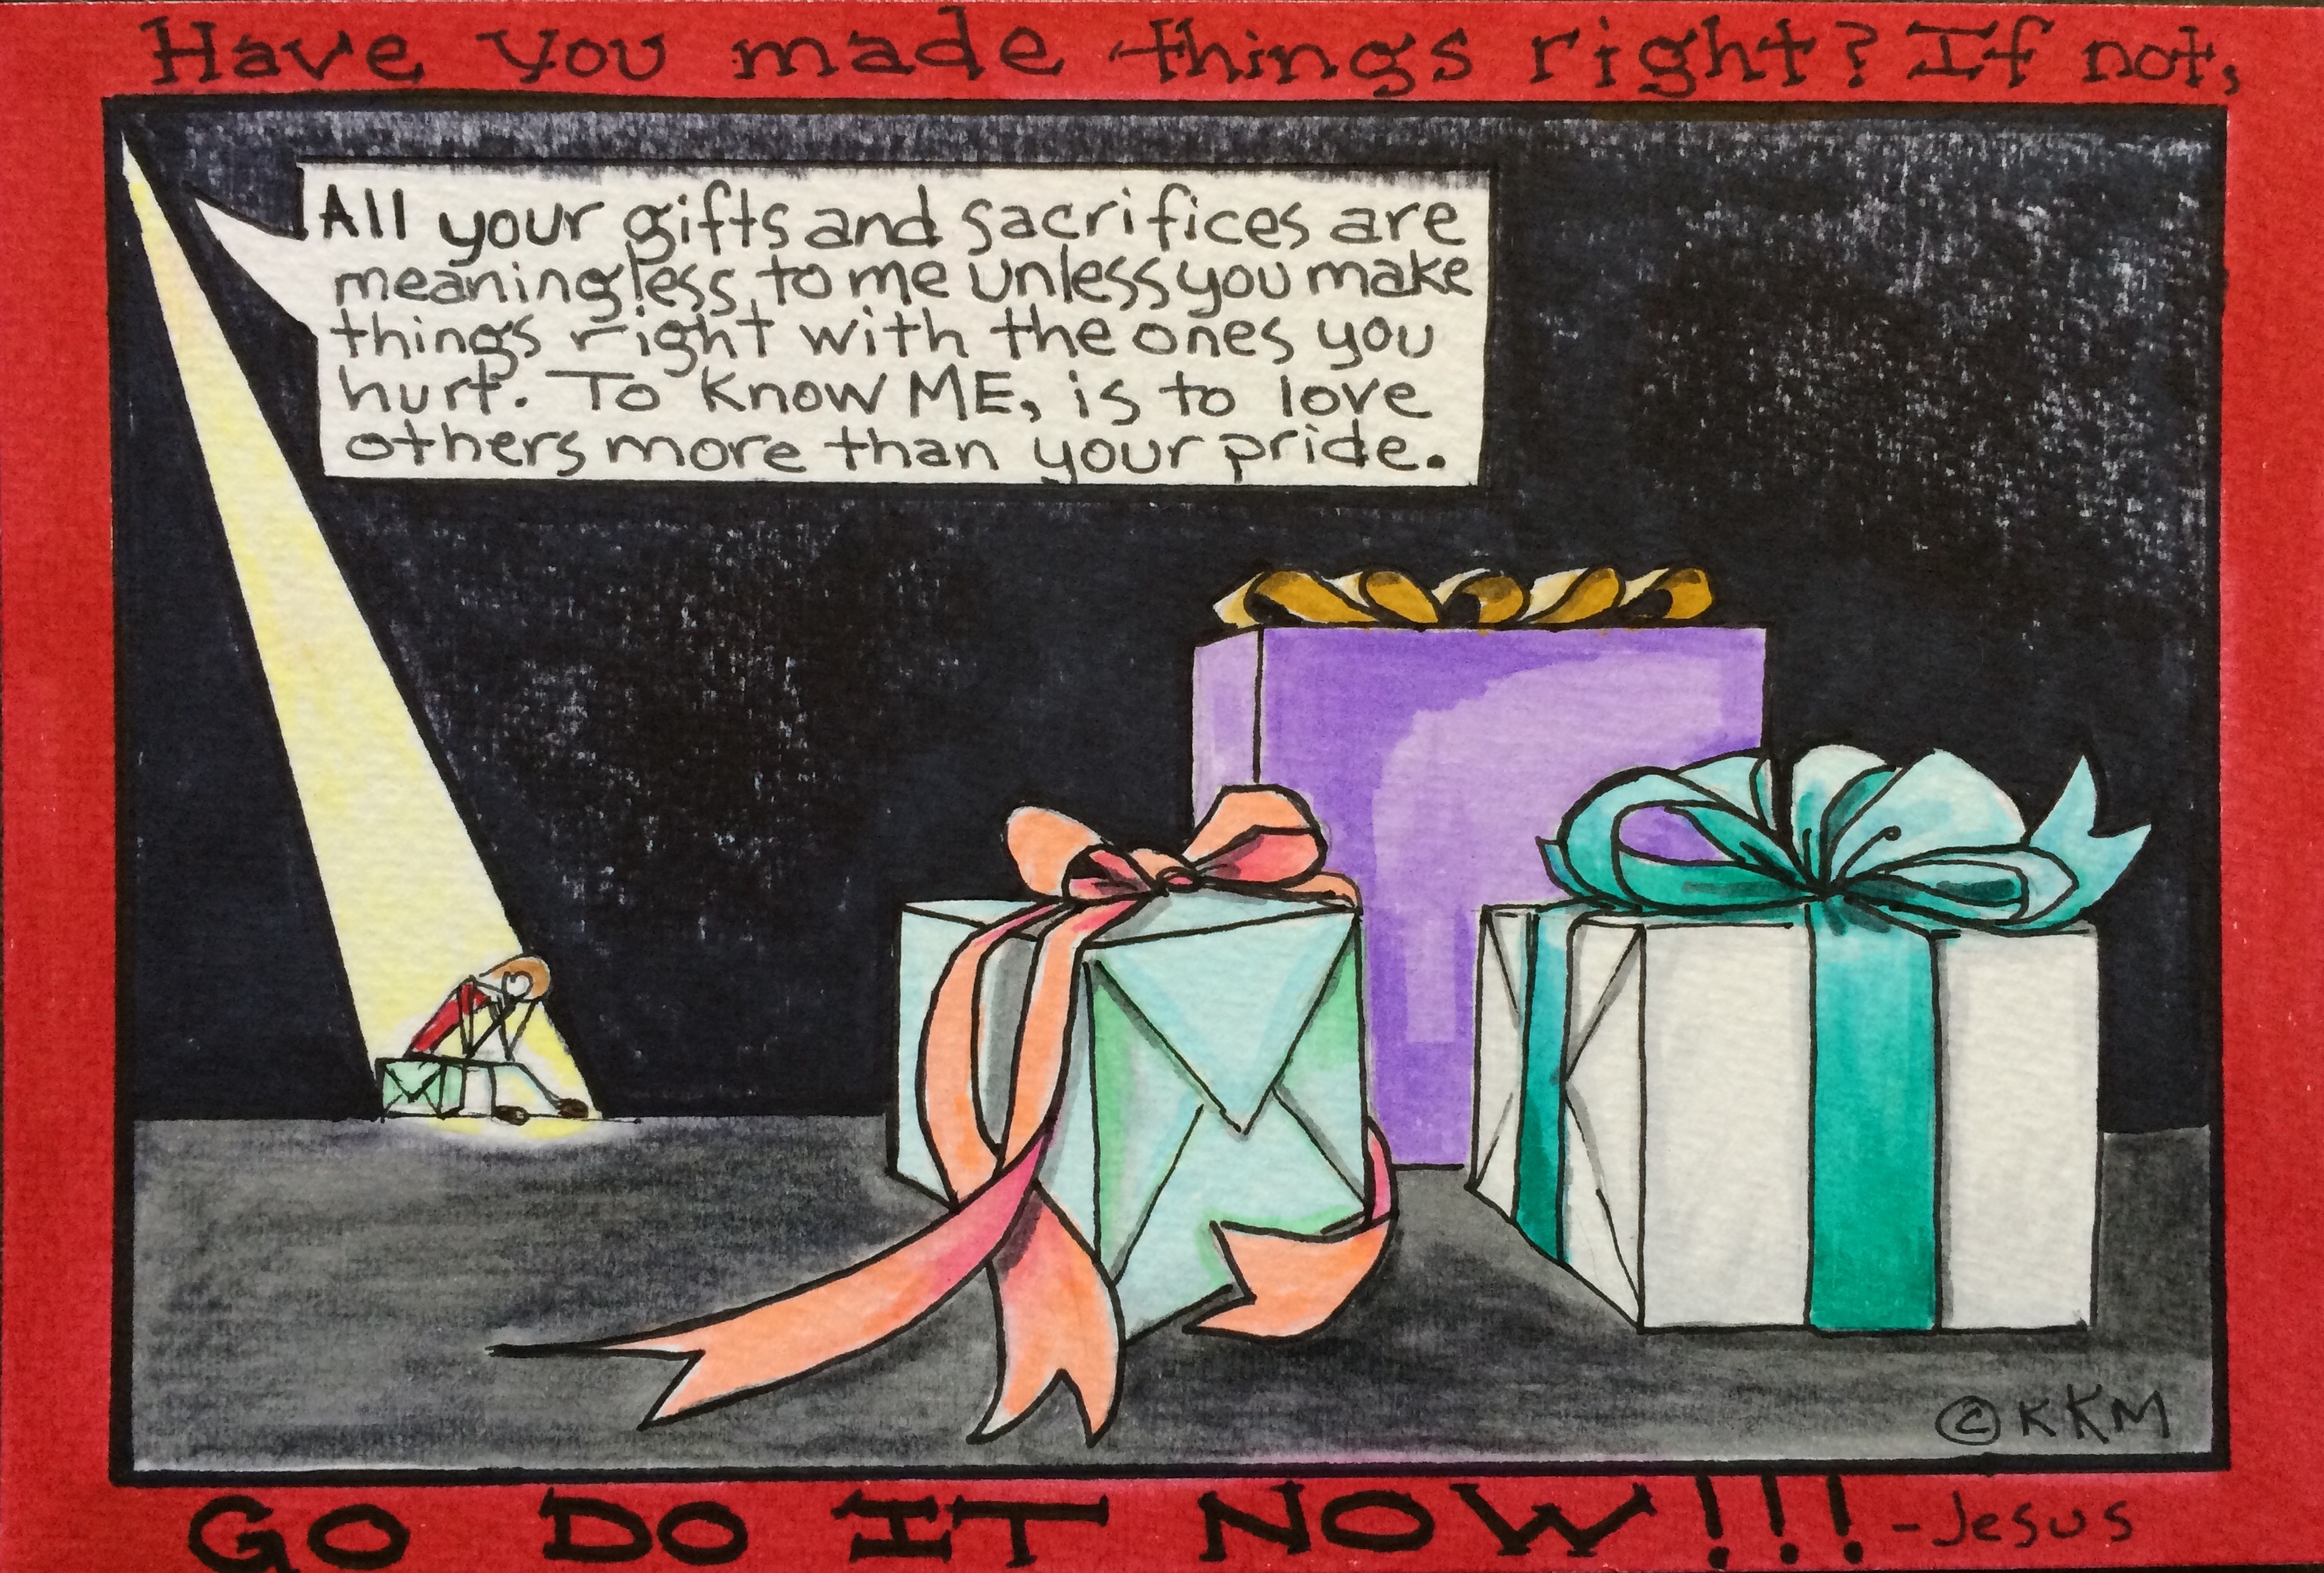 Have you made things right? If not,
All your gifts and sacrifices are
meaningless to me unless you make
things right with the ones you
hurt. To know ME, is to love
others more than your pride.
© KKM
GO DO IT NOW!!! -Jesus